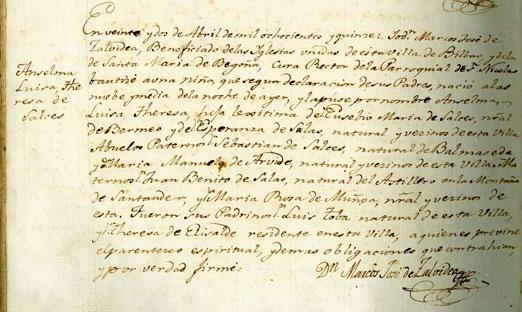 En veinte y dos de Abril de mil ochocientos y quinze: Yo Dn. Marcos José de
Zaloidea, Beneficiado de las Iglesias unidas de esta Villa de Bilbao, y de la
de Santa Maria de Begoña, Cura Rector de la Parroquial de Sn. Nicolas
bautizé a una niña, que segun declaracion de sus Padres, nació a las
nuebe y media de la noche de ayer, y la puse por nombre Anselma,
Luisa, Theresa, hija lexitima de Eusebio Maria de Salces, nral
de Bermeo y de Esperanza de Salas, natural y vezinos de esta Villa
Abuelos Paternos Sebastian de Salces, natural de Balmaseda
y Maria Manuela de Arvide, natural y vezinos de esta Villa: Ma
ternos Juan Benito de Salas, natural del Astillero en la Montaña
de Santander, y Maria Rosa de Muñoa, nral y vezinos de
esta. Fueron sus Padrinos Luis Toba natural de esta Villa,
y Theresa de Elicalde residente en esta Villa, a quienes previne
el parentesco espiritual, y demas obligaciones que contrahian,
y por verdad firmé:
Dn. Marcos José de Zaloidea
Anselma
Luisa, The
resa de
Salces